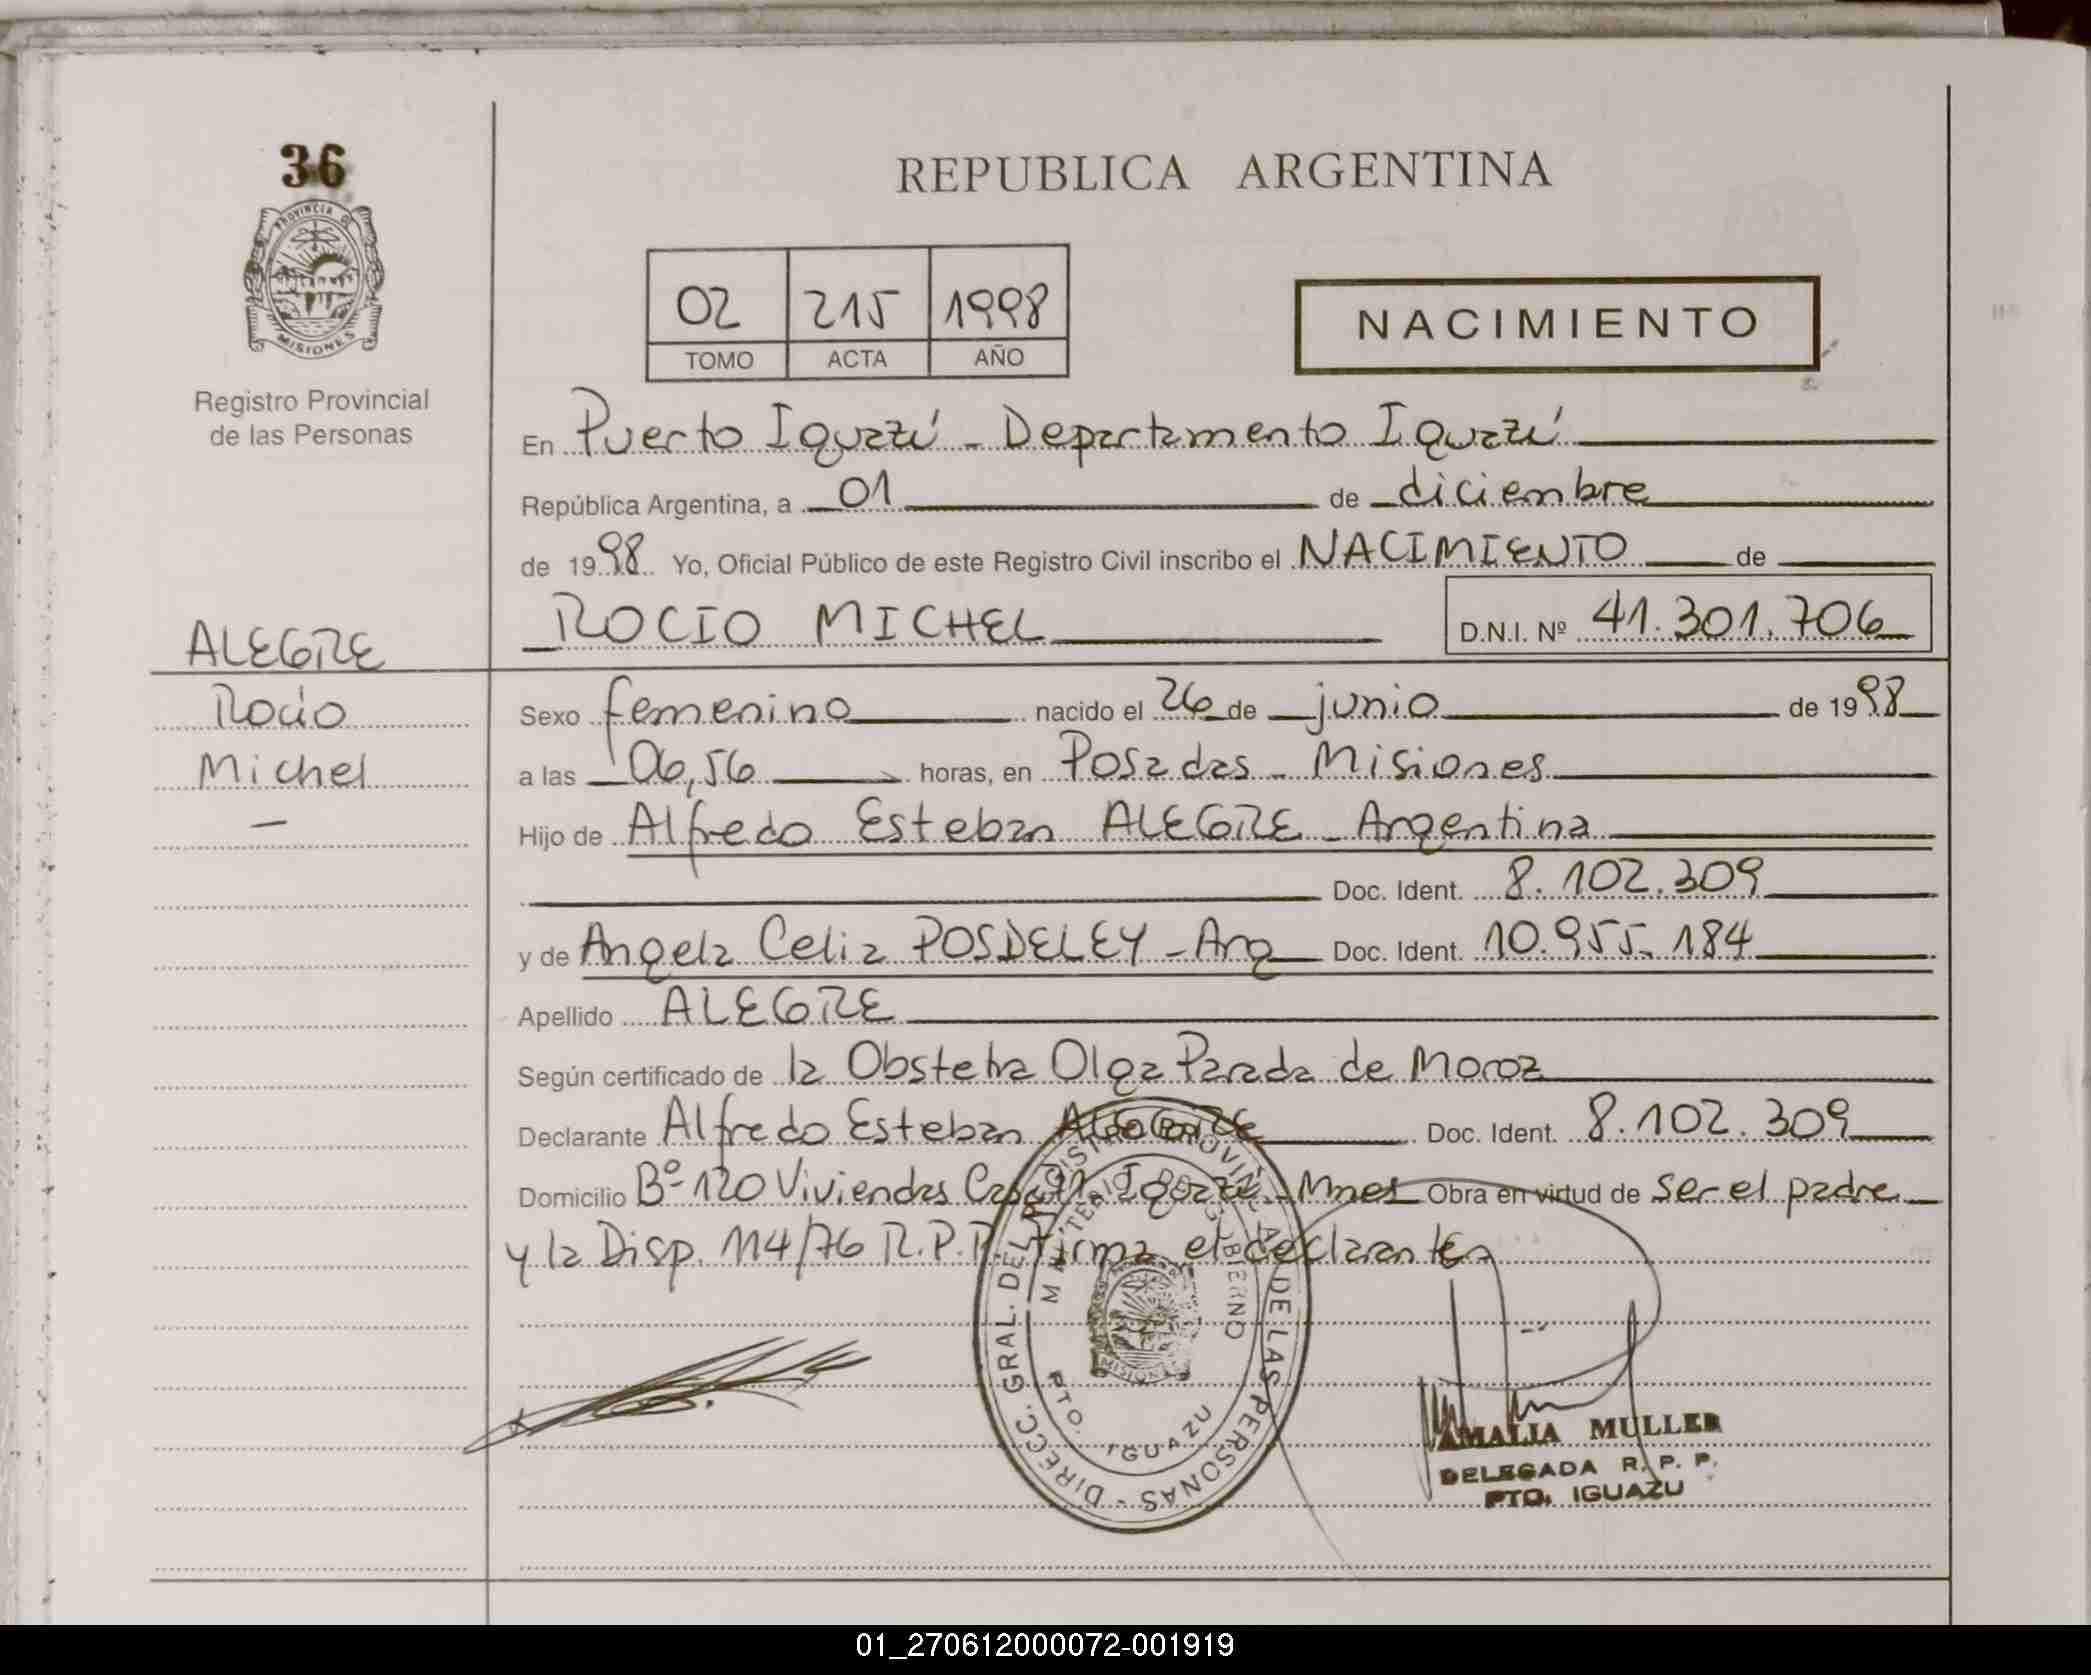 36
PROVINCIA DE
MISIONES
Registro Provincial
de las Personas
REPUBLICA ARGENTINA
02 215 1998
TOMO ACTA AÑO
NACIMIENTO
En Puerto Iguazú - Departamento Iguazú
República Argentina, a 01 de diciembre
de 1998 Yo, Oficial Público de este Registro Civil inscribo el NACIMIENTO de
ROCIO MICHEL D.N.I. Nº 41.301.706
ALEGRE
Rocío
Michel
Sexo femenino nacido el 26 de junio de 1998
a las 06,56 horas, en Posadas - Misiones
Hijo de Alfredo Esteban ALEGRE - Argentina
Doc. Ident. 8.102.309
y de Angela Celia POSDELEY - Arg Doc. Ident. 10.955.184
Apellido ALEGRE
Según certificado de la Obstetra Olga Parada de Moroz
Declarante Alfredo Esteban ALEGRE Doc. Ident. 8.102.309
Domicilio Bº 120 Viviendas Iguazú - Mnes Obra en virtud de ser el padre
y la Disp. 114/76 R.P.P. Firma el declarante
DIRECC. GRAL. DEL REGISTRO PROVINCIAL DE LAS PERSONAS -
MINISTERIO DE GOBIERNO
MISIONES
PTO. IGUAZU
AMALIA MULLER
DELEGADA R. P. P.
PTO. IGUAZU
01_270612000072-001919